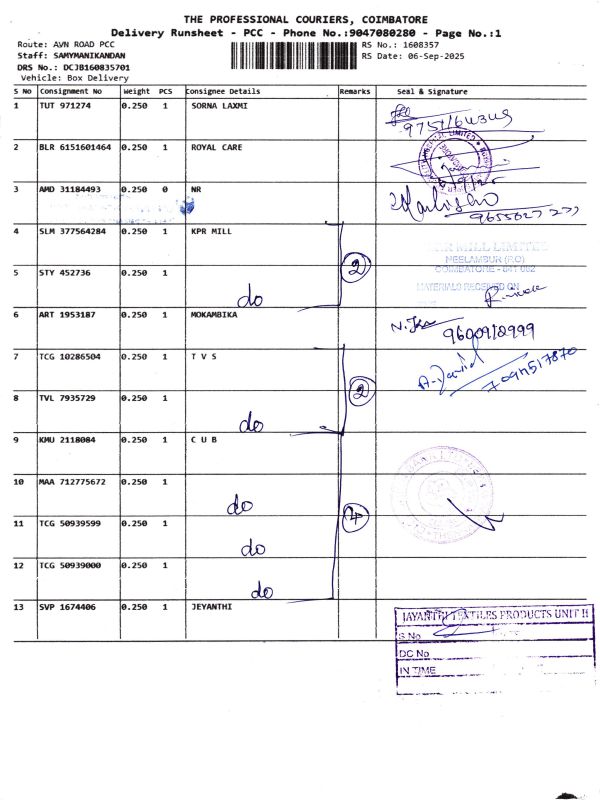 THE PROFESSIONAL COURIERS, COIMBATORE
Delivery Runsheet - PCC - Phone No.:9047080280 - Page No.:1
Route: AVN ROAD PCC
RS No.: 1608357
Staff: SAMYMANIKANDAN
RS Date: 06-Sep-2025
DRS No.: DCJB160835701
Vehicle: Box Delivery
S No Consignment No Weight PCS Consignee Details Remarks Seal & Signature
1 TUT 971274 0.250 1 SORNA LAXMI
2 BLR 6151601464 0.250 1 ROYAL CARE
3 AMD 31184493 0.250 0 NR
4 SLM 377564284 0.250 1 KPR MILL
KPR MILL LIMITED
NEELAMBUR (P.O)
COIMBATORE - 641 062
2
5 STY 452736 0.250 1 do
MATERIALS RECEIVED ON
6 ART 1953187 0.250 1 MOKAMBIKA
9600918999
7 TCG 10286504 0.250 1 T V S
7094517870
2
8 TVL 7935729 0.250 1 do
9 KMU 2118084 0.250 1 C U B
10 MAA 712775672 0.250 1 do
4
11 TCG 50939599 0.250 1 do
12 TCG 50939000 0.250 1 do
13 SVP 1674406 0.250 1 JEYANTHI
JAYANTHI TEXTILES PRODUCTS UNIT II
S No
DC No
IN TIME